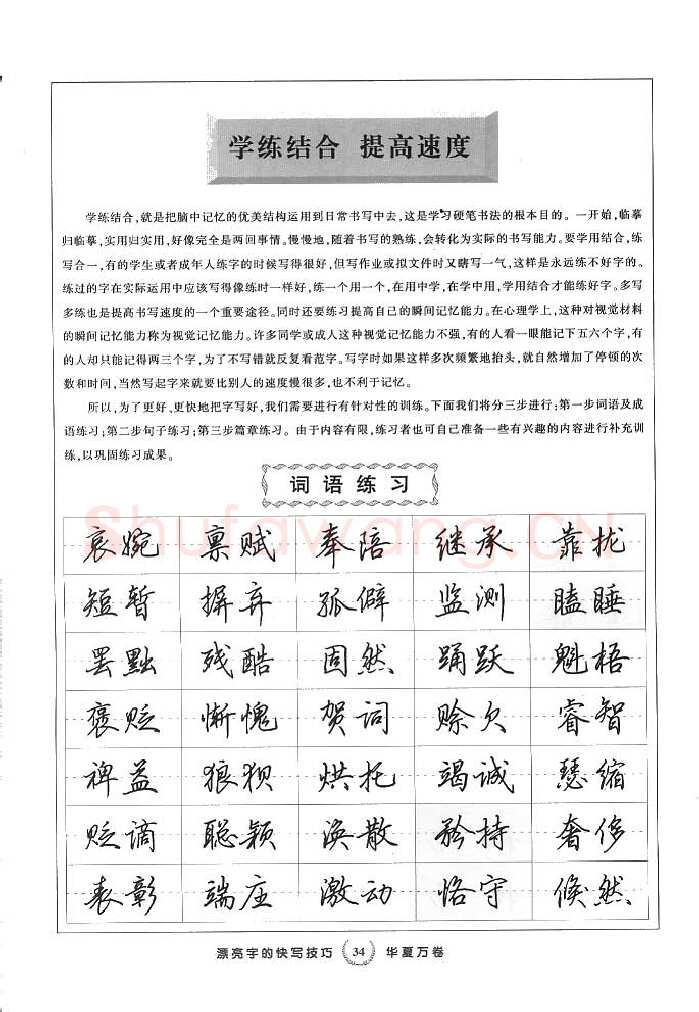 学练结合 提高速度
学练结合,就是把脑中记忆的优美结构运用到日常书写中去。这是学习硬笔书法的根本目的。一开始,临摹
归临摹,实用归实用,好像完全是两回事情。慢慢地,随着书写的熟练,会转化为实际的书写能力。要学用结合,练
写合一,有的学生或者成年人练字的时候写得很好,但写作业或拟文件时又瞎写一气,这样是永远练不好字的。
练过的字在实际运用中应该写得像练时一样好,练一个用一个,在用中学,在学中用,学用结合才能练好字。多写
多练也是提高书写速度的一个重要途径。同时还要练习提高自己的瞬间记忆能力。在心理学上,这种对视觉材料
的瞬间记忆能力称为视觉记忆能力。许多同学或成人这种视觉记忆能力不强,有的人看一眼能记下五六个字,有
的人却只能记得两三个字,为了不写错就反复看范字。写字时如果这样多次频繁地抬头,就自然增加了停顿的次
数和时间,当然写起字来就要比别人的速度慢很多,也不利于记忆。
所以,为了更好、更快地把字写好,我们需要进行有针对性的训练。下面我们将分三步进行:第一步词语及成
语练习;第二步句子练习;第三步篇章练习。由于内容有限,练习者也可自己准备一些有兴趣的内容进行补充训
练,以巩固练习成果。
词语练习
Shufawang.CN
哀婉 禀赋 奉陪 继承 靠拢
短暂 摒弃 孤僻 监测 瞌睡
罢黜 残酷 固然 踊跃 魁梧
褒贬 惭愧 贺词 赊欠 睿智
裨益 狼狈 烘托 竭诚 瑟缩
贬谪 聪颖 涣散 矜持 奢侈
表彰 端庄 激动 恪守 倏然
漂亮字的快写技巧 34 华夏万卷